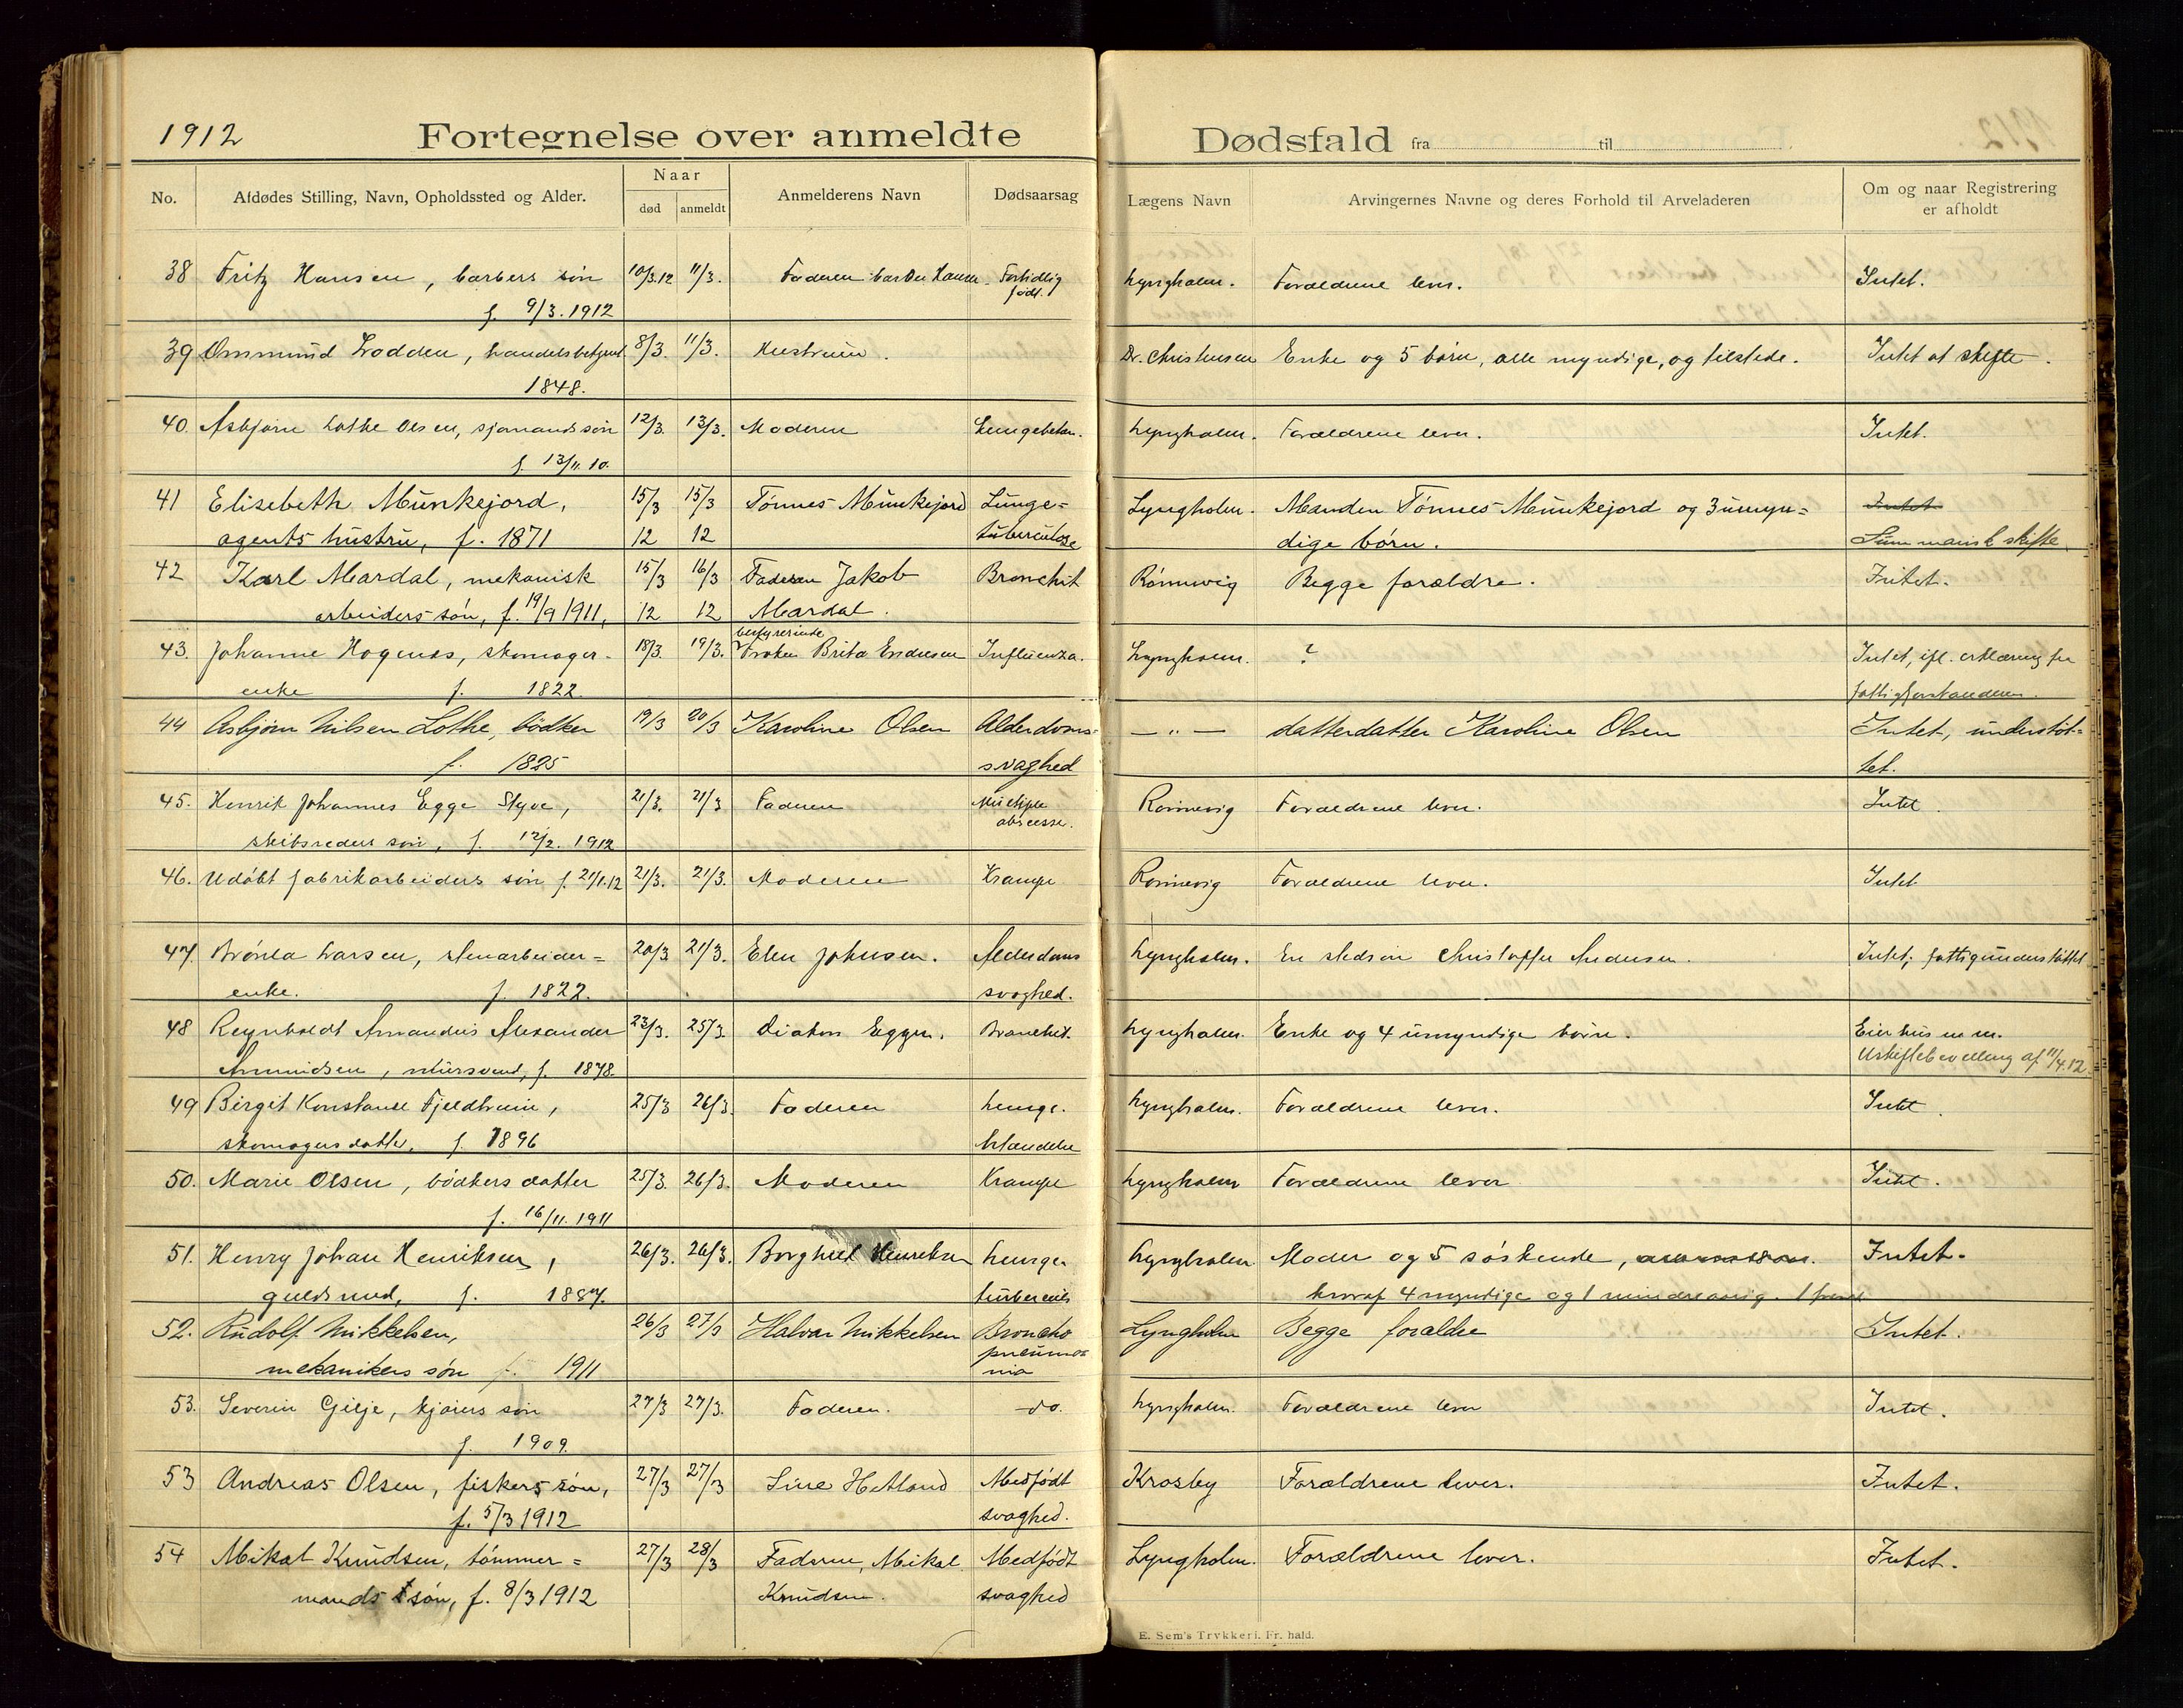 1912 Fortegnelse over anmeldte Dødsfald fra til
No. Afdødes Stilling, Navn, Opholdssted og Alder. Naar død anmeldt Anmelderens Navn Dødsaarsag Lægens Navn Arvingernes Navne og deres Forhold til Arveladeren Om og naar Registrering er afholdt
38 Fritz Hansen, barbers søn 10/3.12 11/3. Faderen Fortidlig Lyngholm. Forældrene lever. Intet.
f. 9/3.1912 født.
39 Ommund Trodden, handelsbetjent 8/3. 11/3. Hustruen. Dr. Christensen Enke og 5 børn, alle myndige, og tilstede. Intet at skifte.
1848.
40. Asbjørn Lothe Olsen, sjømands søn 12/3. 13/3. Moderen Lungebetæn. Lyngholm. Forældrene lever. Intet.
f. 13/11.10.
41 Elisebeth Munkejord, 15/3 15/3 Tønnes Munkejord Lunge= Lyngholm. Manden Tønnes Munkejord og 3 umyn= Intet
agents hustru, f. 1871 12 12 tuberculose dige børn. Summarisk skifte.
42 Karl Mardal, mekanisk 15/3 16/3 Faderen Jakob Bronchit Rønnevig Begge forældre. Intet.
arbeiders søn, f. 19/9 1911, 12 12 Mardal.
43. Johanne Hognæs, skomager- 18/3. 19/3. bestyrerinde Frøken Brita Endresen Influenza. Lyngholm. ? Intet, ifl. erklæring fra
enke f. 1822. fattigforstanderen.
44 Asbjørn Nilsen Lothe, bødker 19/3 20/3 Karoline Olsen Alderdoms= —„— datterdatter Karoline Olsen Intet, understøt=
f. 1825 svaghed tet.
45. Henrik Johannes Egge Styve, 21/3. 21/3 Faderen Multiple Rønnevig Forældrene lever. Intet.
skibsreders søn, f. 12/2. 1912 abscesse.
46. Udøbt fabrikarbeiders søn f. 21/1.12 21/3. 21/3. Moderen Krampe Rønnevig Forældrene lever. Intet
47. Brønla Larsen, stenarbeider= 20/3 21/3. Elen Johnsen. Alderdoms Lyngholm. En stedsøn Christoffer Andersen. Intet; fattigunderstøttet
enke. f. 1822. svaghed.
48 Reynholdt Amandus Alexander 23/3. 25/3. Diakon Eggen. Bronchit. Lyngholm. Enke og 4 umyndige børn. Eier hus m. m.
Amundsen, mursvend, f. 1878. Uskiftebevilling af 11/4.12.
49 Birgit Konstanse Fjeldheim, 25/3 26/3. Faderen Lunge. Lyngholm. Forældrene lever. Intet.
skomagers datter, f. 1896 betændelse
50. Marie Olsen, bødkers datter 25/3. 26/3. Moderen Krampe Lyngholm Forældrene lever Intet.
f. 16/11.1911
51. Henry Johan Henriksen, 26/3. 26/3. Borghild Henriksen Lunge. Lyngholm. Moder og 5 søskende, Intet.
guldsmed, f. 1887. tuberculs hvoraf 4 myndige og 1 mindreaarig.
52. Rudolf Mikkelsen, 26/3 27/3 Halvar Mikkelsen Broncho Lyngholm Begge forældre Intet.
mekanikers søn f. 1911 pneumo= nia
53. Severin Gilje, kjørers søn 27/3 27/3. Faderen. —do. Lyngholm. Forældrene lever Intet.
f. 1909.
53 Andreas Olsen, fiskers søn, 27/3 27/3 Line Hetland Medfødt Krosby Forældrene lever. Intet.
f. 5/3 1912 svaghed.
54 Mikal Knudsen, tømmer= 27/3 28/3 Faderen, Mikal Medfødt Lyngholm. Forældrene lever. Intet.
mands søn, f. 8/3 1912 Knudsen. svaghed
E. Sem's Trykkeri. Fr. hald.